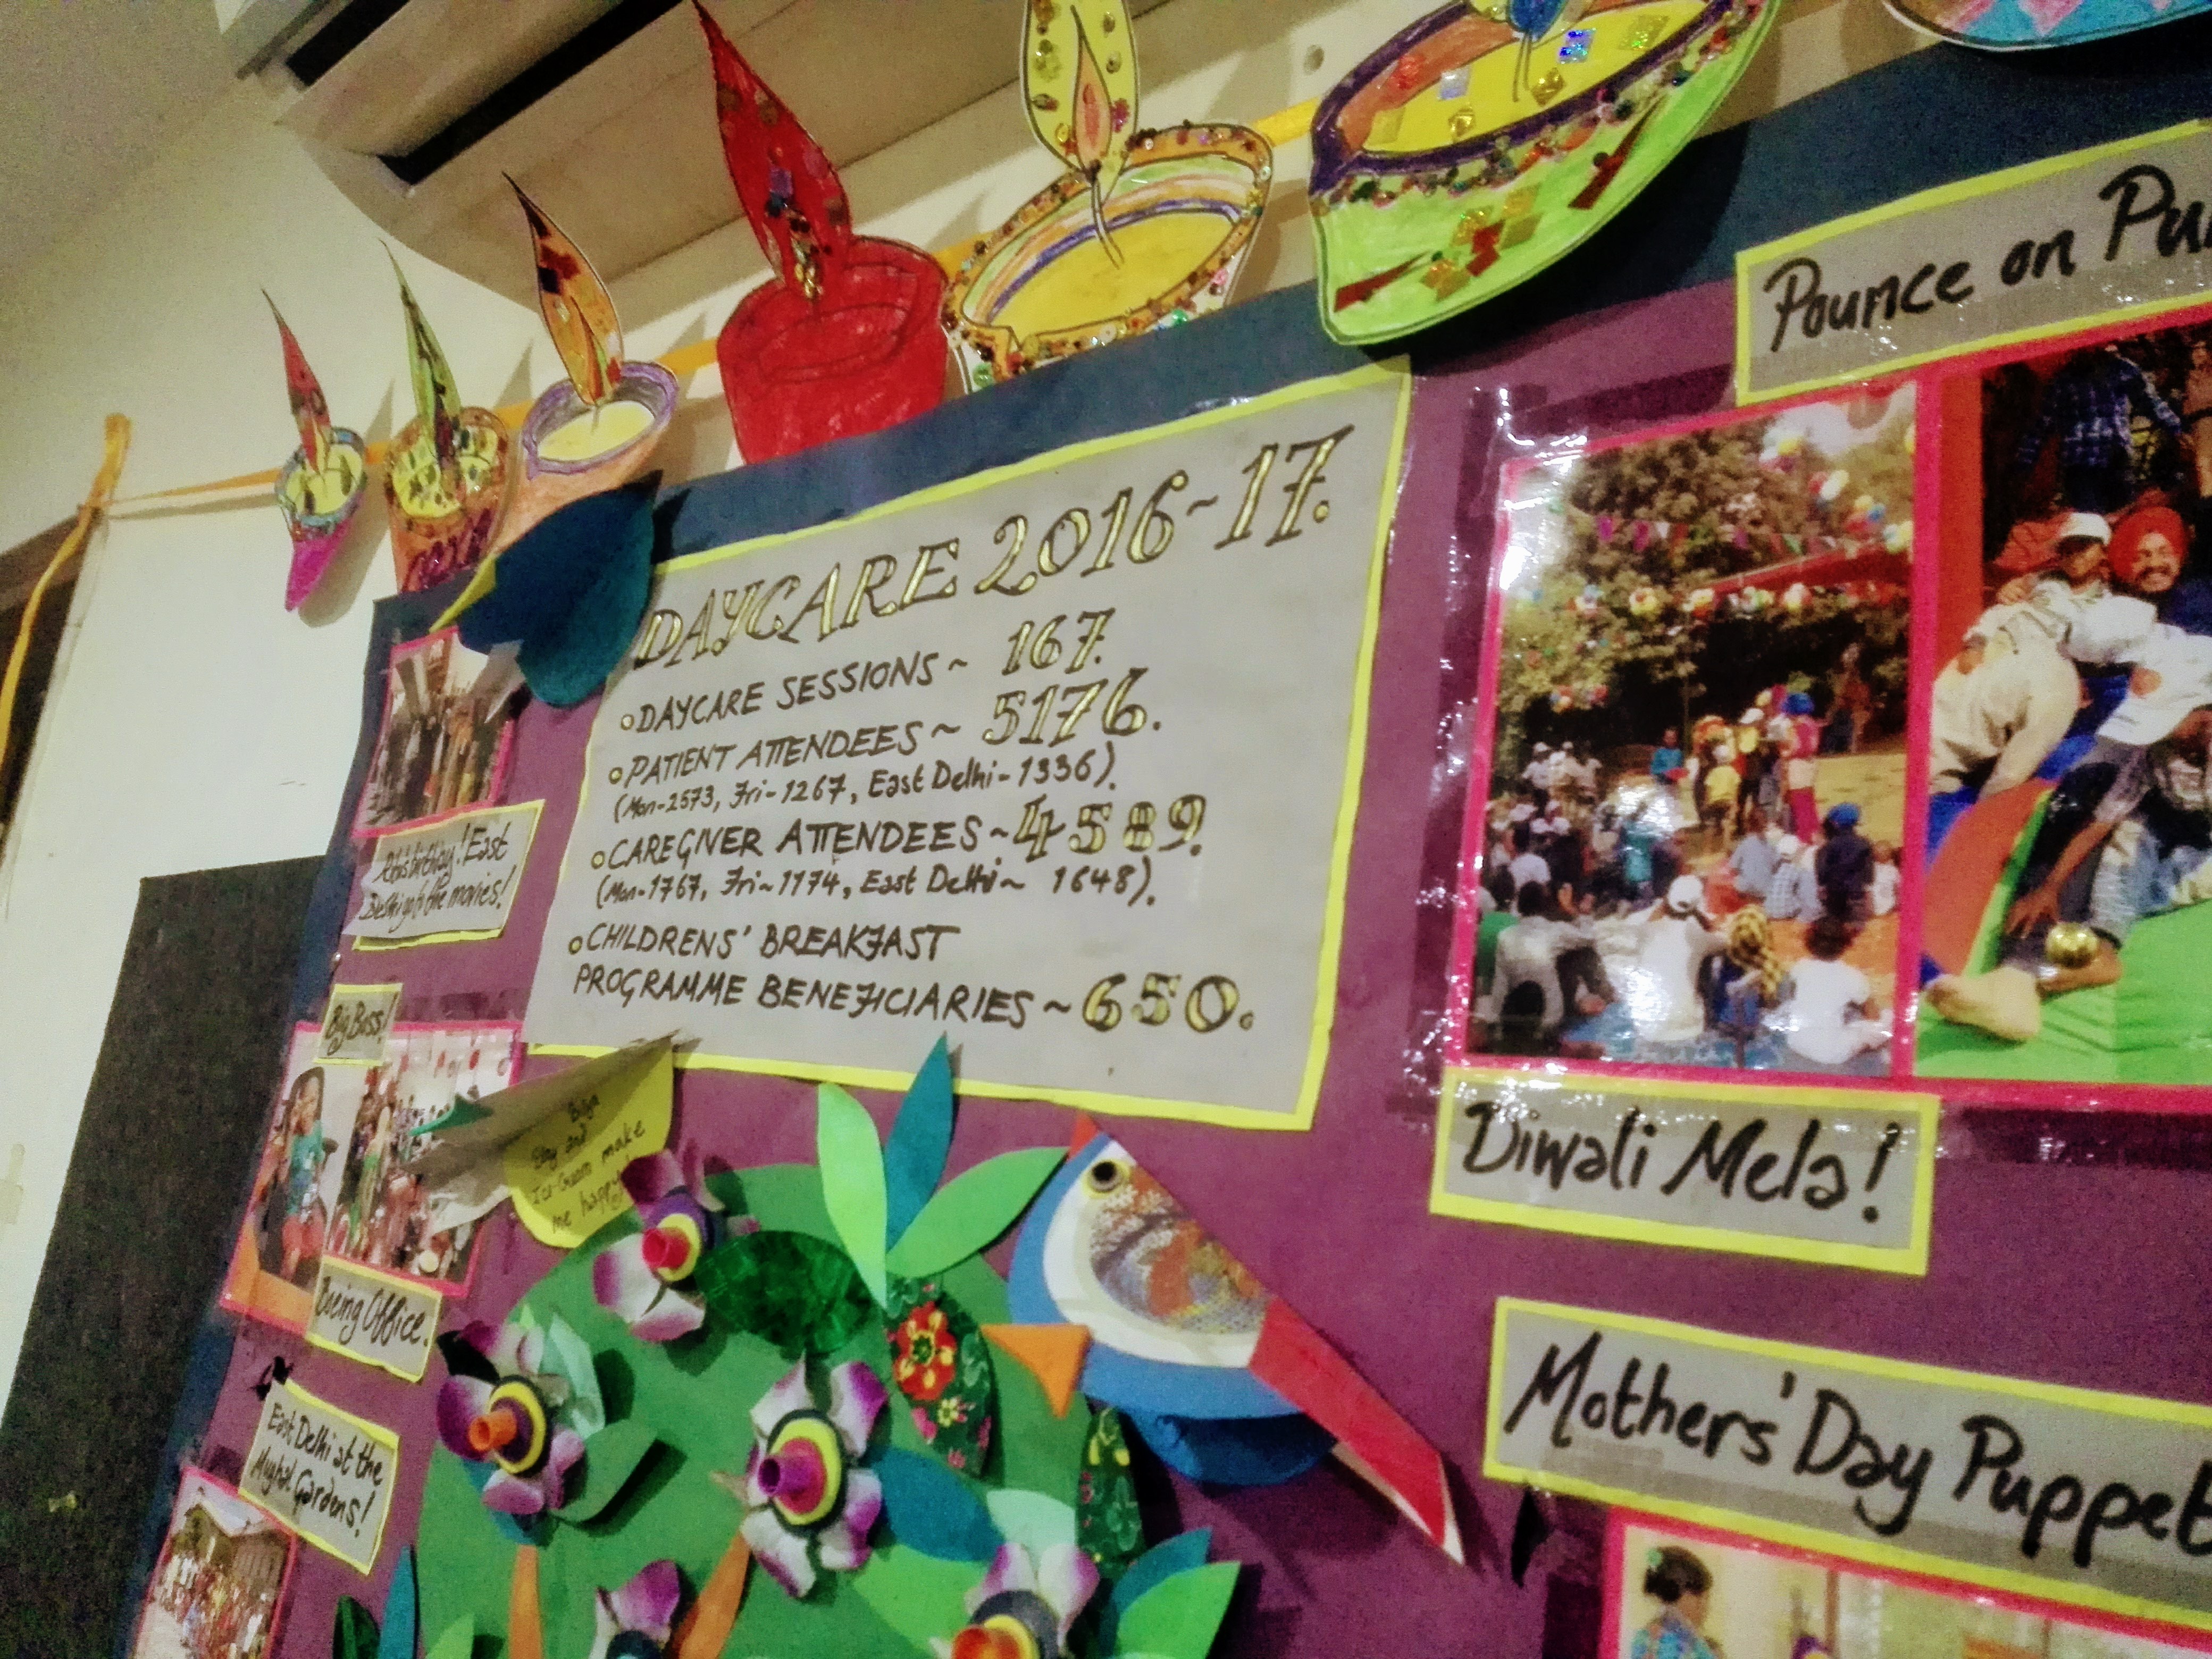 DAYCARE 2016-17.
DAYCARE SESSIONS ~ 167.
PATIENT ATTENDEES ~ 5176.
(Mon-2573, Fri-1267, East Delhi-1336).
CAREGIVER ATTENDEES ~ 4589.
(Mon-1767, Fri~1174, East Delhi~ 1648).
CHILDRENS' BREAKFAST
PROGRAMME BENEFICIARIES ~ 650.
Pounce on
Diwali Mela!
Mothers' Day Puppet
East
Delhi go to the movies!
Big Boss!
Boeing Office.
East Delhi at the
Mughal Gardens!
and
Ice-Cream make
me happy!